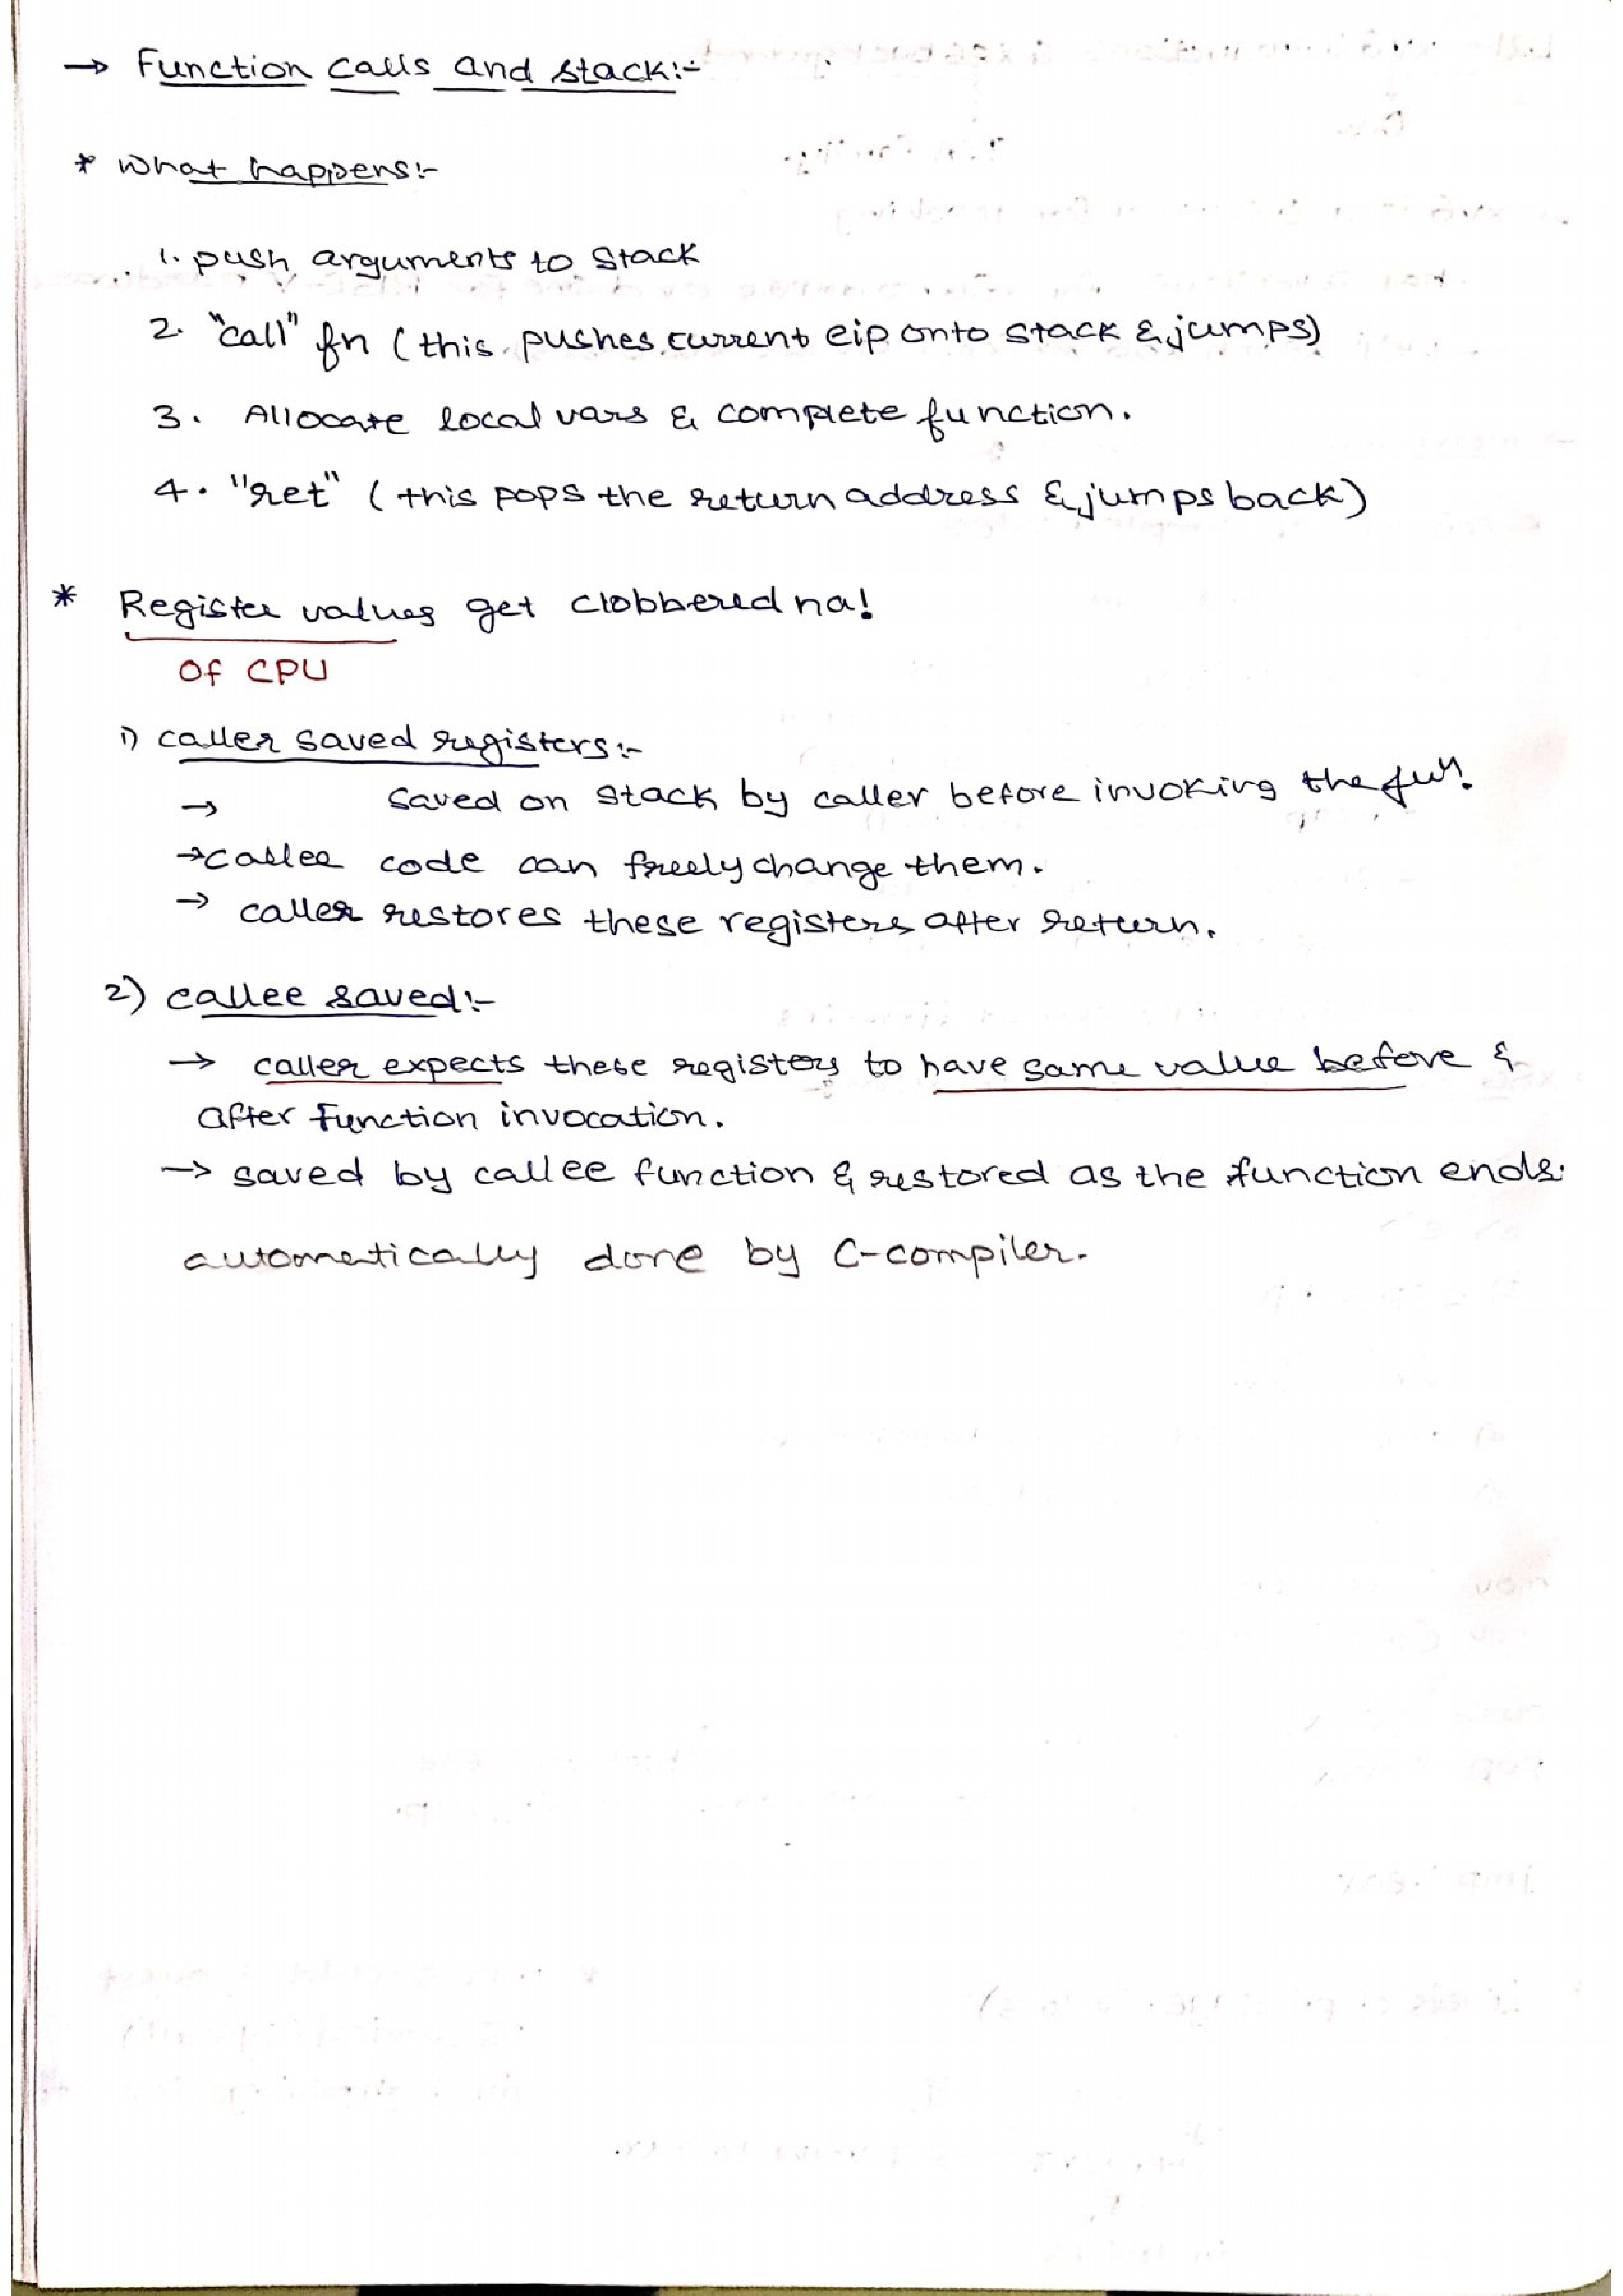 → Function calls and stack:-
* What happens:-
1. push arguments to stack
2. "call" fn (this pushes current eip onto stack & jumps)
3. Allocate local vars & complete function.
4. "ret" (this pops the return address & jumps back)
* Register values get clobbered na!
Of CPU
1) caller saved registers:-
→ Saved on stack by caller before invoking the
→ callee code can freely change them.
→ caller restores these registers after return.
2) callee saved:-
→ caller expects these registers to have same value before &
after function invocation.
→ saved by callee function & restored as the function ends.
automatically done by C-compiler.